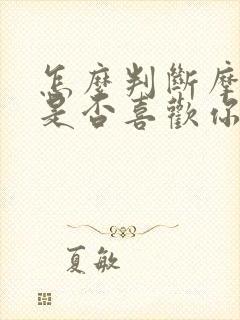 怎麼判斷摩
是否喜歡你
夏敏